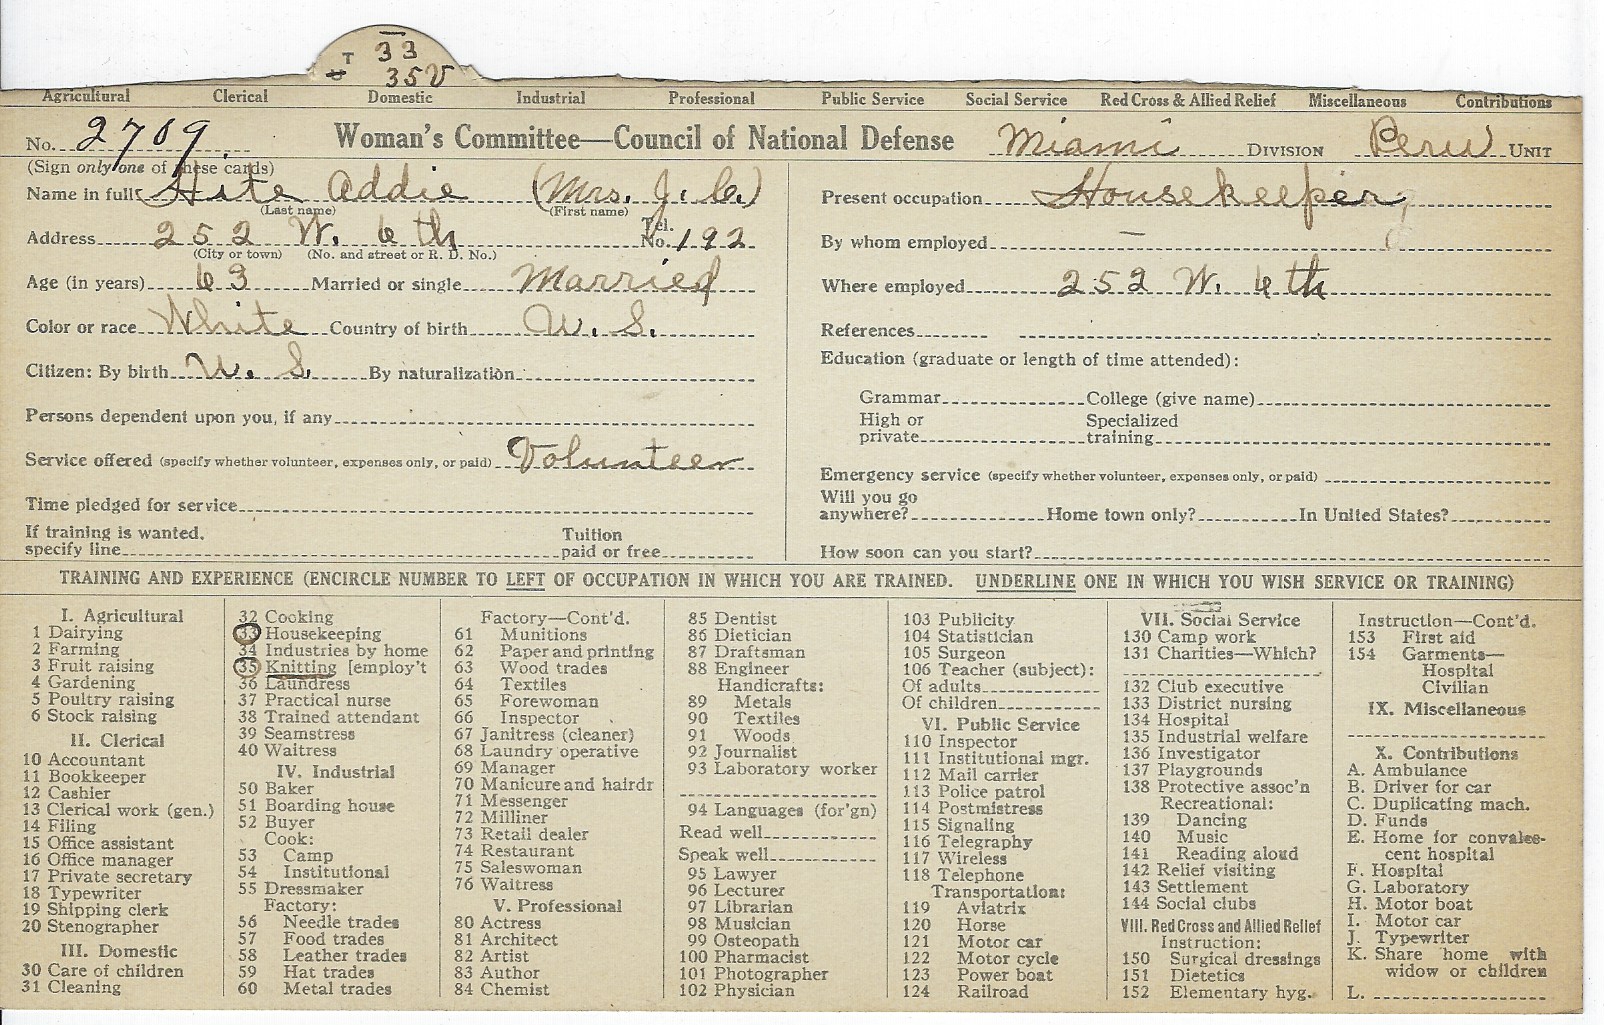 T 33
35V
Agricultural Clerical Domestic Industrial Professional Public Service Social Service Red Cross & Allied Relief Miscellaneous Contributions
No. 2709 Woman's Committee—Council of National Defense Miami DIVISION Peru UNIT
(Sign only one of these cards)
Name in full Hite Addie (Mrs. J. C.)
(Last name) (First name)
Address 252 W. 6th Tel. No. 192
(City or town) (No. and street or R. D. No.)
Age (in years) 63 Married or single Married
Color or race White Country of birth U. S.
Citizen: By birth U. S. By naturalization
Persons dependent upon you, if any
Service offered (specify whether volunteer, expenses only, or paid) Volunteer
Time pledged for service
If training is wanted, specify line Tuition paid or free
Present occupation Housekeeper
By whom employed —
Where employed 252 W. 6th
References
Education (graduate or length of time attended):
Grammar College (give name)
High or private Specialized training
Emergency service (specify whether volunteer, expenses only, or paid)
Will you go anywhere? Home town only? In United States?
How soon can you start?
TRAINING AND EXPERIENCE (ENCIRCLE NUMBER TO LEFT OF OCCUPATION IN WHICH YOU ARE TRAINED. UNDERLINE ONE IN WHICH YOU WISH SERVICE OR TRAINING)
I. Agricultural
1 Dairying
2 Farming
3 Fruit raising
4 Gardening
5 Poultry raising
6 Stock raising
II. Clerical
10 Accountant
11 Bookkeeper
12 Cashier
13 Clerical work (gen.)
14 Filing
15 Office assistant
16 Office manager
17 Private secretary
18 Typewriter
19 Shipping clerk
20 Stenographer
III. Domestic
30 Care of children
31 Cleaning
32 Cooking
33 Housekeeping
34 Industries by home
35 Knitting [employ't
36 Laundress
37 Practical nurse
38 Trained attendant
39 Seamstress
40 Waitress
IV. Industrial
50 Baker
51 Boarding house
52 Buyer
Cook:
53 Camp
54 Institutional
55 Dressmaker
Factory:
56 Needle trades
57 Food trades
58 Leather trades
59 Hat trades
60 Metal trades
Factory—Cont'd.
61 Munitions
62 Paper and printing
63 Wood trades
64 Textiles
65 Forewoman
66 Inspector
67 Janitress (cleaner)
68 Laundry operative
69 Manager
70 Manicure and hairdr
71 Messenger
72 Milliner
73 Retail dealer
74 Restaurant
75 Saleswoman
76 Waitress
V. Professional
80 Actress
81 Architect
82 Artist
83 Author
84 Chemist
85 Dentist
86 Dietician
87 Draftsman
88 Engineer
Handicrafts:
89 Metals
90 Textiles
91 Woods
92 Journalist
93 Laboratory worker
94 Languages (for'gn)
Read well
Speak well
95 Lawyer
96 Lecturer
97 Librarian
98 Musician
99 Osteopath
100 Pharmacist
101 Photographer
102 Physician
103 Publicity
104 Statistician
105 Surgeon
106 Teacher (subject):
Of adults
Of children
VI. Public Service
110 Inspector
111 Institutional mgr.
112 Mail carrier
113 Police patrol
114 Postmistress
115 Signaling
116 Telegraphy
117 Wireless
118 Telephone
Transportation:
119 Aviatrix
120 Horse
121 Motor car
122 Motor cycle
123 Power boat
124 Railroad
VII. Social Service
130 Camp work
131 Charities—Which?
132 Club executive
133 District nursing
134 Hospital
135 Industrial welfare
136 Investigator
137 Playgrounds
138 Protective assoc'n
Recreational:
139 Dancing
140 Music
141 Reading aloud
142 Relief visiting
143 Settlement
144 Social clubs
VIII. Red Cross and Allied Relief
Instruction:
150 Surgical dressings
151 Dietetics
152 Elementary hyg.
Instruction—Cont'd.
153 First aid
154 Garments—
Hospital
Civilian
IX. Miscellaneous
X. Contributions
A. Ambulance
B. Driver for car
C. Duplicating mach.
D. Funds
E. Home for convales-
cent hospital
F. Hospital
G. Laboratory
H. Motor boat
I. Motor car
J. Typewriter
K. Share home with
widow or children
L.